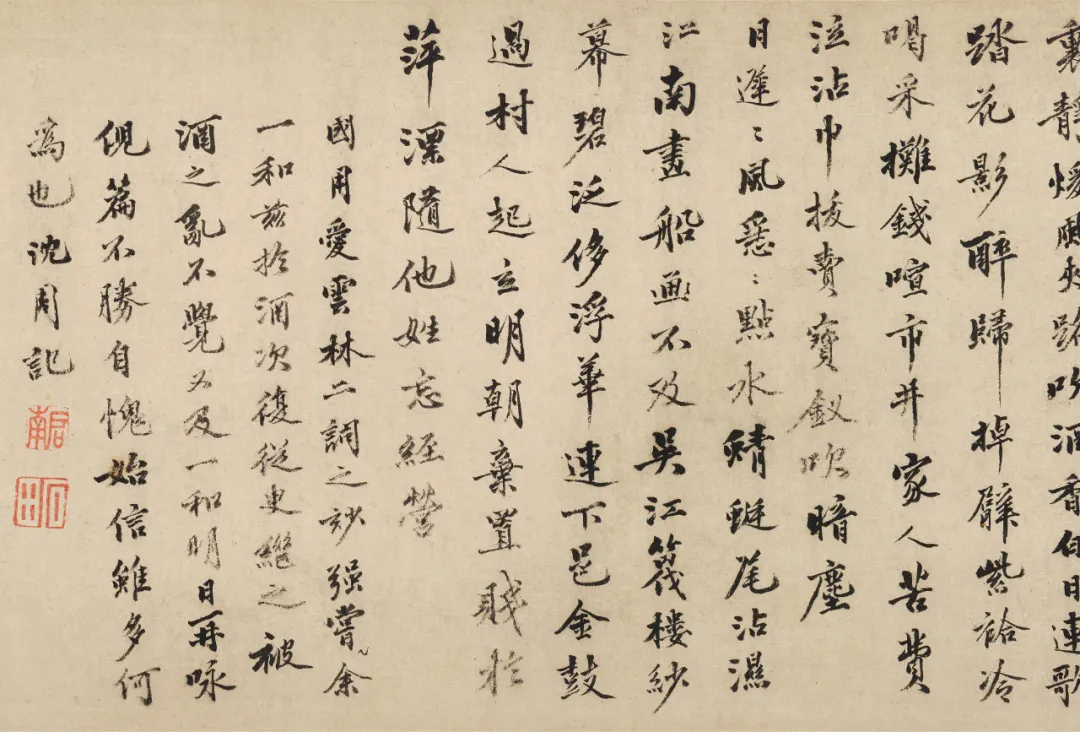 裏靜煖夾路吹酒香白日連歌
踏花影醉歸掉臂紫袷冷
喝采攤錢喧市井家人苦費
泣沾巾拔賣寶釵吹暗塵
日遲〻風惡〻點水蜻蜓尾沾濕
江南畫船畫不及吳江筏樓紗
幕碧泛侈浮華連下邑金鼓
過村人起立明朝棄置賤於
萍漂隨他姓忘經營
國用愛雲林二詞之妙強嘗余
一和茲於酒次復從臾繼之被
酒之亂不覺又及一和明日再咏
倪篇不勝自愧始信雖多何
為也沈周記
啟南
石田